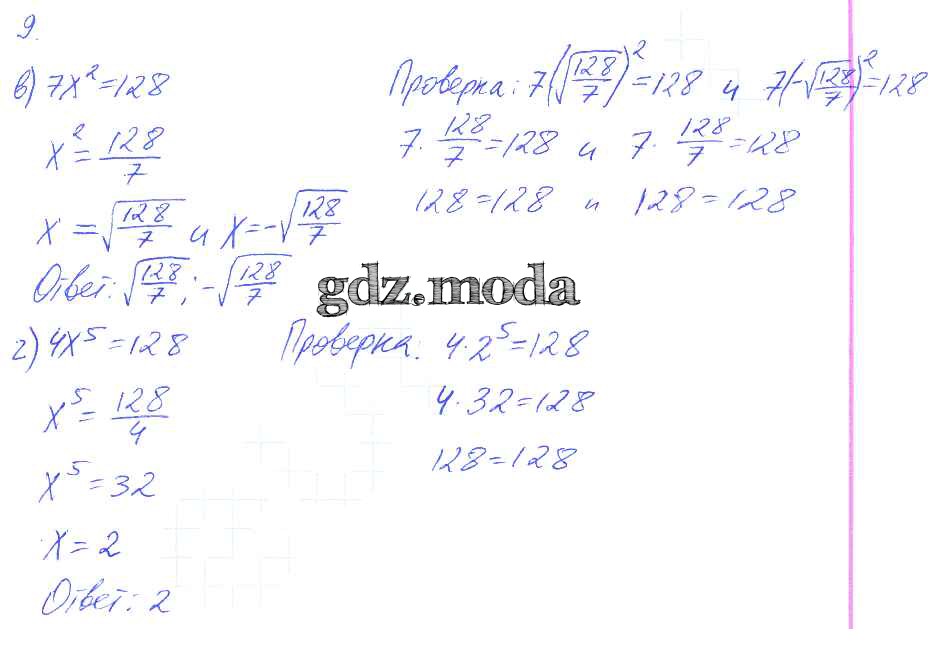 9.
в) 7x² = 128
x² = 128/7
x = √(128/7) и x = -√(128/7)
Ответ: √(128/7); -√(128/7)
Проверка: 7(√(128/7))² = 128 и 7(-√(128/7))² = 128
7 · 128/7 = 128 и 7 · 128/7 = 128
128 = 128 и 128 = 128
gdz.moda
г) 4x⁵ = 128
x⁵ = 128/4
x⁵ = 32
x = 2
Ответ: 2
Проверка: 4 · 2⁵ = 128
4 · 32 = 128
128 = 128